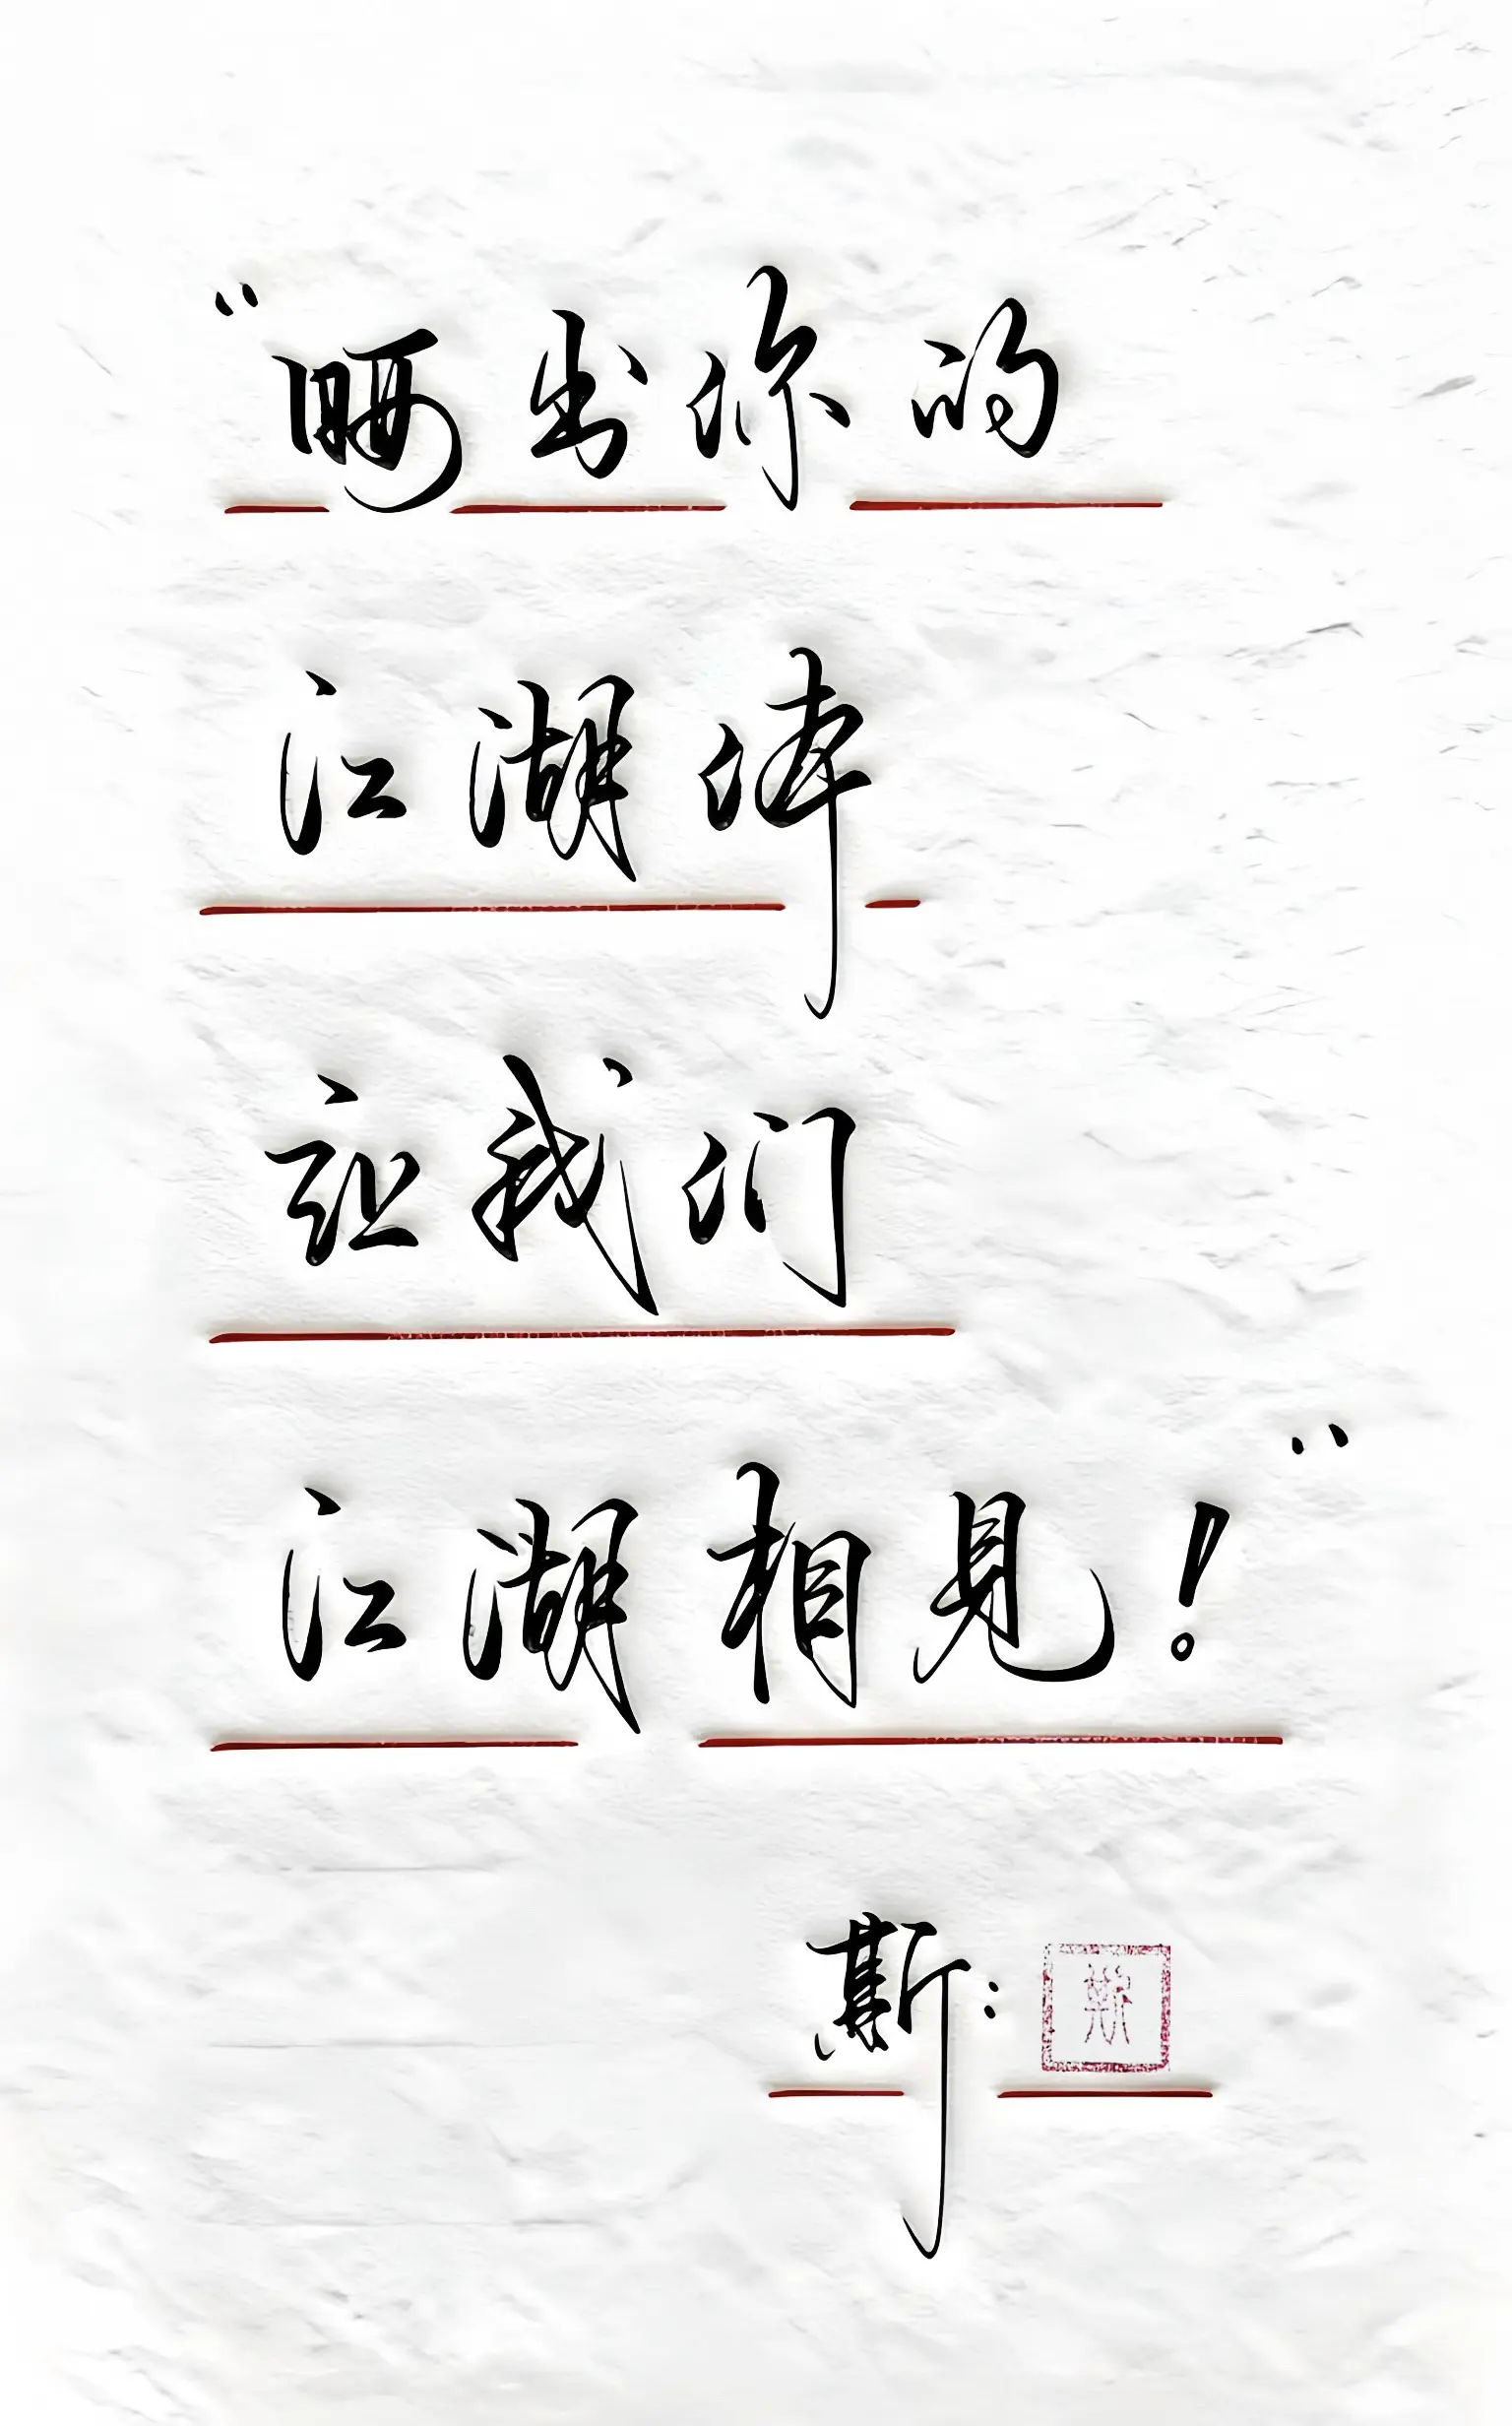 “晒出你的
江湖体
让我们
江湖相见！”
斯：
斯